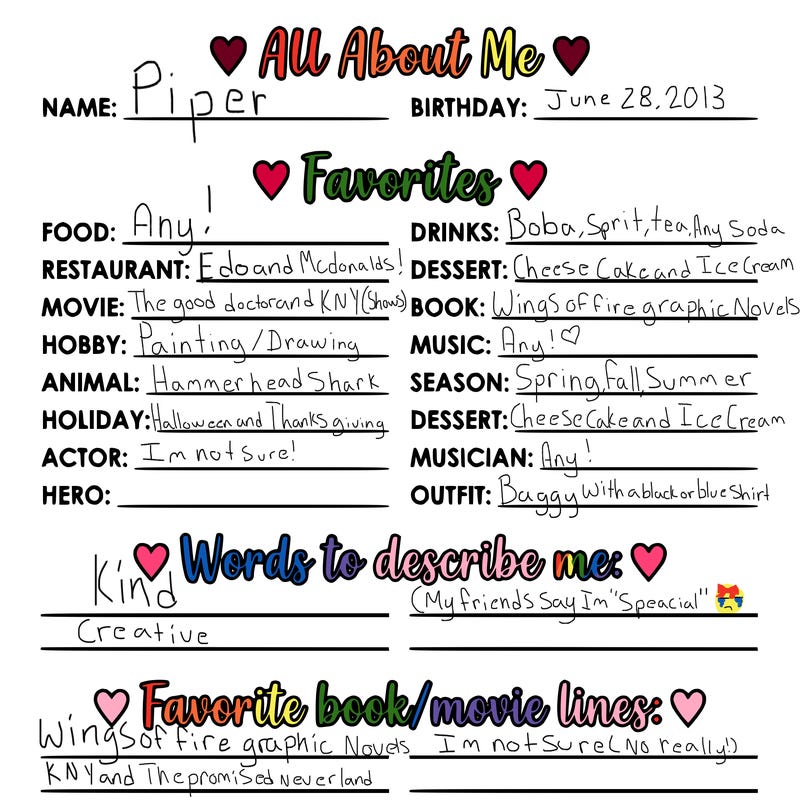 All About Me
NAME: Piper BIRTHDAY: June 28, 2013
Favorites
FOOD: Any! DRINKS: Boba, Sprit, tea, Any Soda
RESTAURANT: Edo and Mcdonalds! DESSERT: Cheese Cake and Ice Cream
MOVIE: The good doctor and KNY (Shows) BOOK: Wings of fire graphic Novels
HOBBY: Painting/Drawing MUSIC: Any!♡
ANIMAL: Hammerhead Shark SEASON: Spring, Fall, Summer
HOLIDAY: Halloween and Thanksgiving DESSERT: Cheese Cake and Ice Cream
ACTOR: Im not Sure! MUSICIAN: Any!
HERO: OUTFIT: Baggy with a black or blue Shirt
Words to describe me:
Kind (My friends Say Im "Speacial"
Creative
Favorite book/movie lines:
Wings of fire graphic Novels Im not Sure (No really!)
KNY and The promised Never land